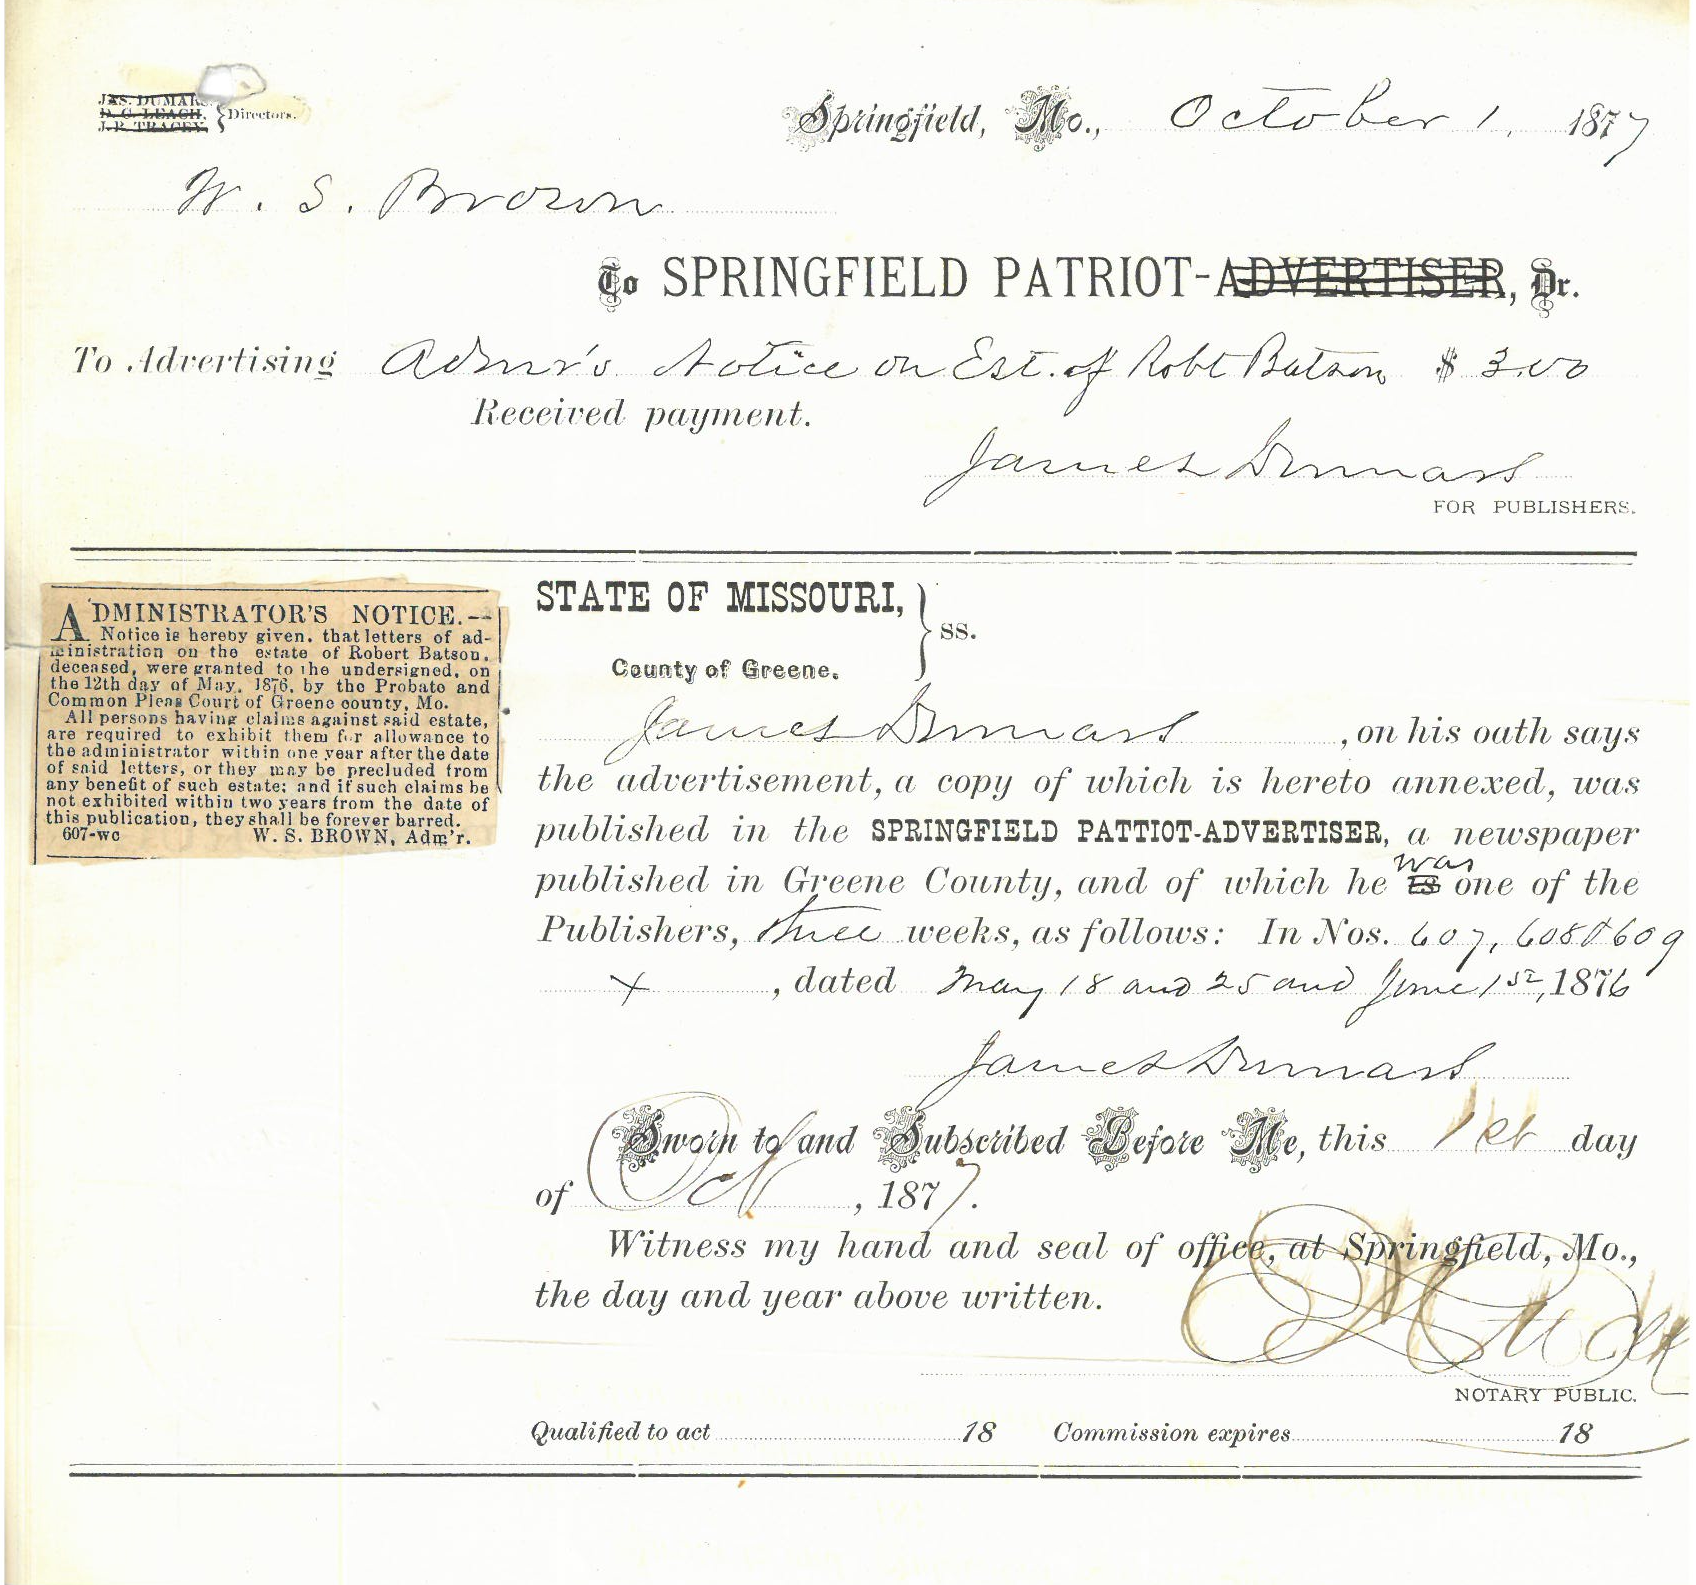 JAS. DUMARS,
D. C. LEACH,
J. P. TRACEY,
} Directors.
Springfield, Mo., October 1, 1877
W. S. Brown
To SPRINGFIELD PATRIOT-ADVERTISER, Dr.
To Advertising Admr's Notice on Est. of Robt Batson $ 3.00
Received payment.
James Dumars
FOR PUBLISHERS.
ADMINISTRATOR'S NOTICE.—
Notice is hereby given, that letters of ad-
ministration on the estate of Robert Batson,
deceased, were granted to the undersigned, on
the 12th day of May, 1876, by the Probate and
Common Pleas Court of Greene county, Mo.
All persons having claims against said estate,
are required to exhibit them for allowance to
the administrator within one year after the date
of said letters, or they may be precluded from
any benefit of such estate; and if such claims be
not exhibited within two years from the date of
this publication, they shall be forever barred.
607-wc W. S. BROWN, Adm'r.
STATE OF MISSOURI, } ss.
County of Greene.
James Dumars, on his oath says
the advertisement, a copy of which is hereto annexed, was
published in the SPRINGFIELD PATTIOT-ADVERTISER, a newspaper
was
published in Greene County, and of which he is one of the
Publishers, three weeks, as follows: In Nos. 607, 608 & 609
x , dated May 18 and 25 and June 1st, 1876
James Dumars
Sworn to and Subscribed Before Me, this 1st day
of Oct, 1877.
Witness my hand and seal of office, at Springfield, Mo.,
the day and year above written.
NOTARY PUBLIC.
Qualified to act 18 Commission expires 18